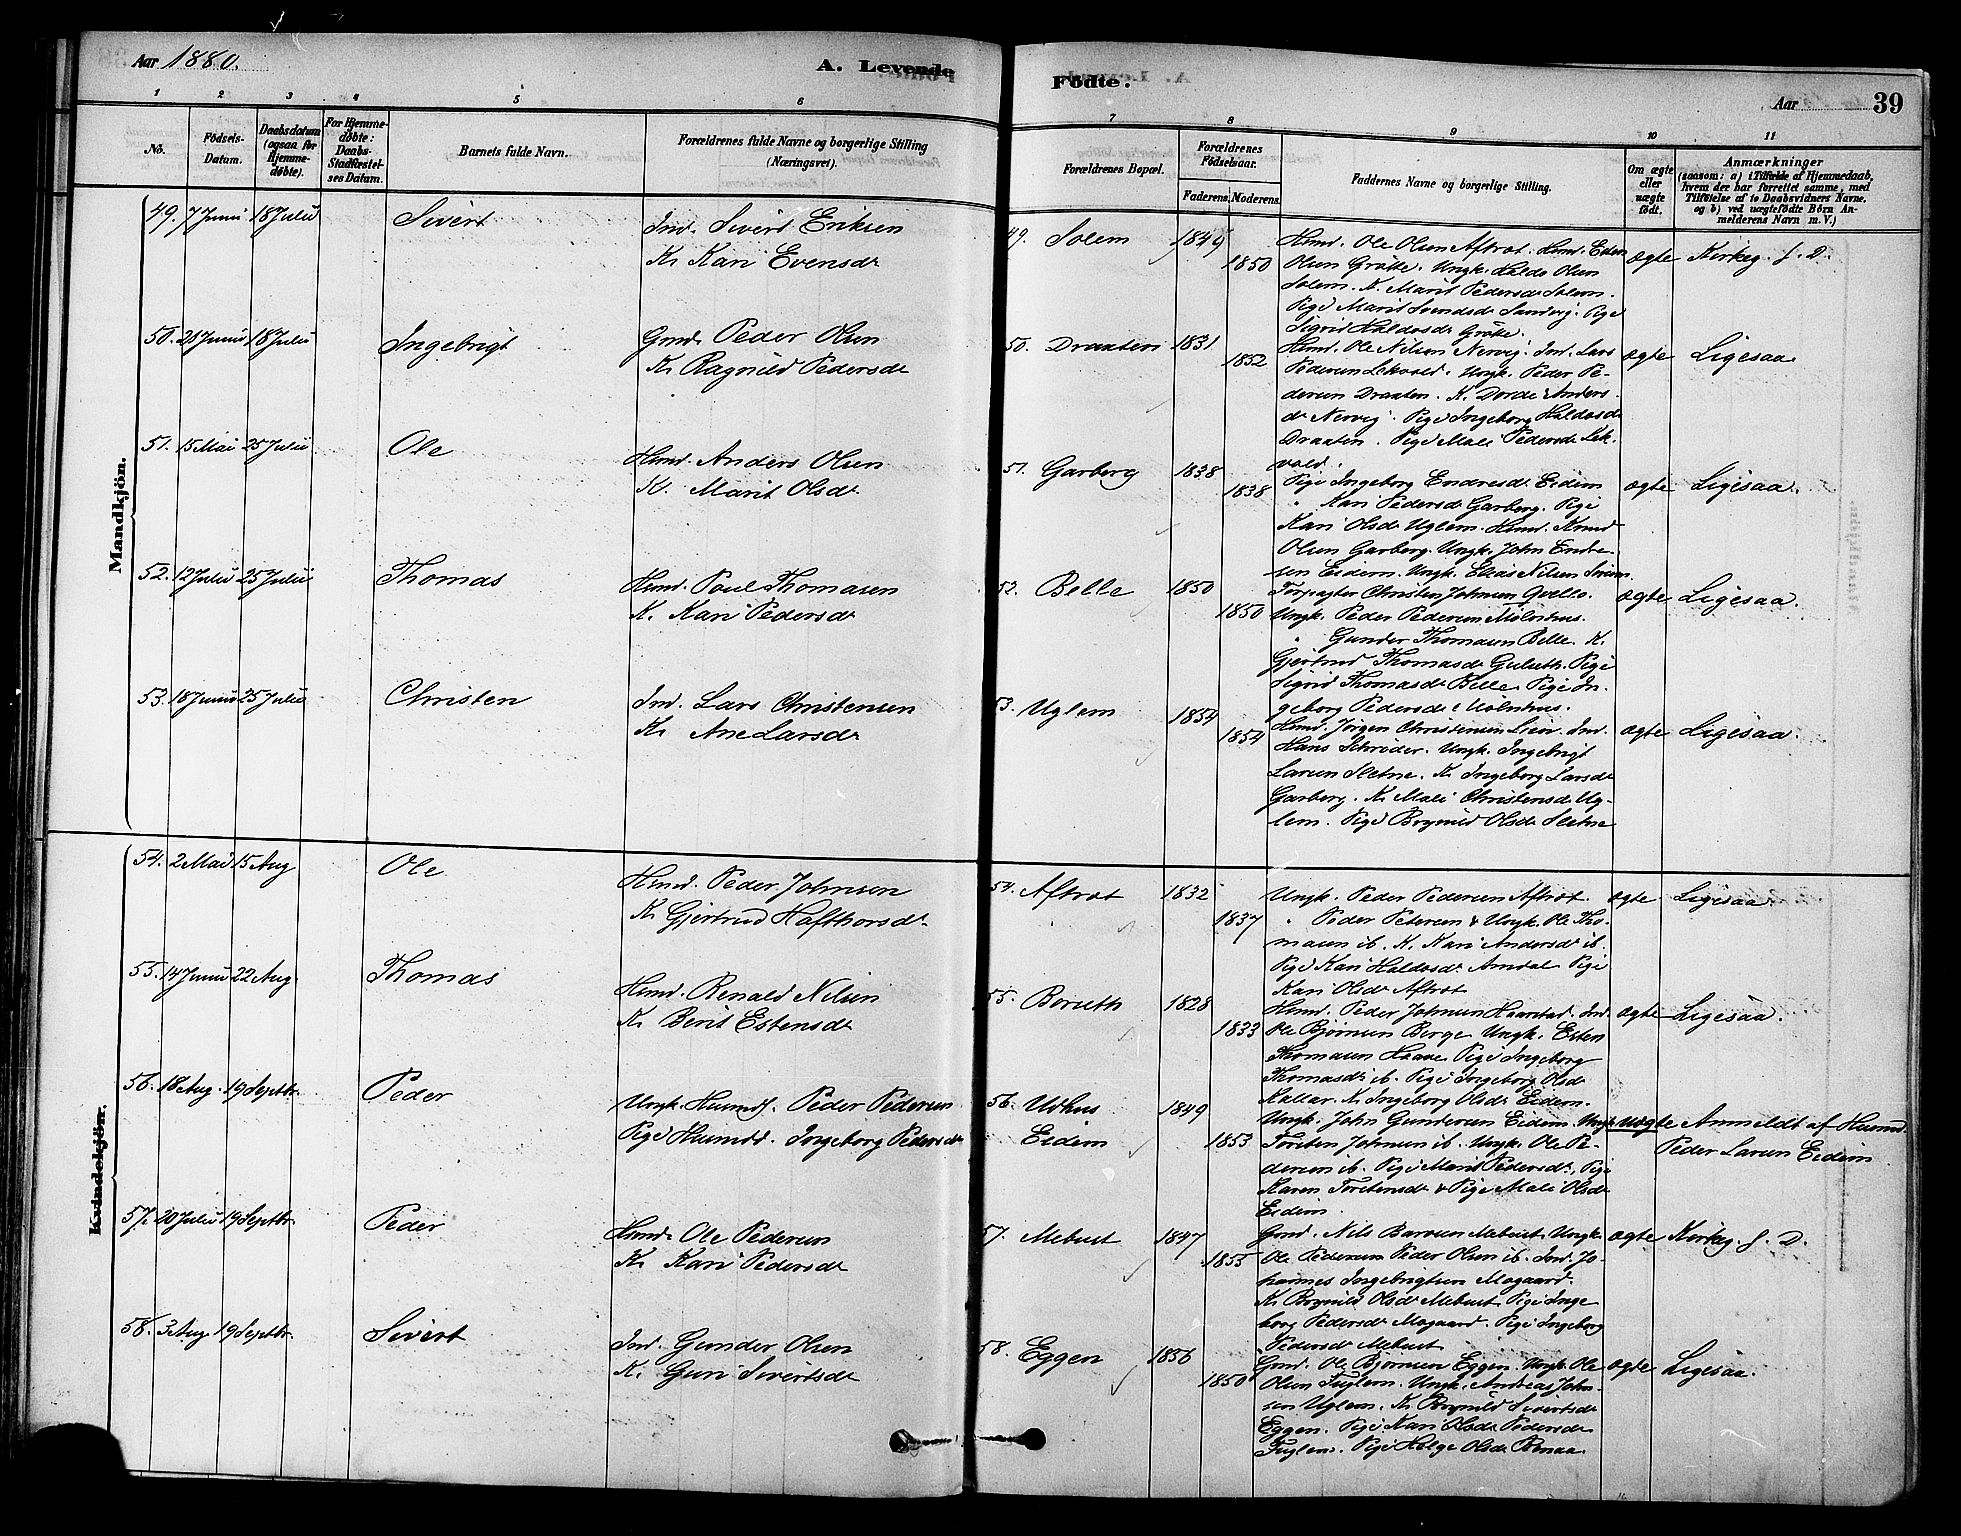 Aar 1880.
A. Levende Födte.
Aar 39
1 2 3 4 5 6 7 8 9 10 11
No.
Födsels-Datum.
Daabsdatum (ogsaa for Hjemmedøbte).
For Hjemmedøbte: Daabs-Stadfæstelses Datum.
Barnets fulde Navn.
Forældrenes fulde Navne og borgerlige Stilling (Næringsvei).
Forældrenes Bopæl.
Forældrenes Födselsaar.
Faderens. Moderens.
Faddernes Navne og borgerlige Stilling.
Om ægte eller uægte födt.
Anmærkninger (saasom: a) i Tilfælde af Hjemmedaab, hvem der har forrettet samme, med Tilföielse af to Daabsvidners Navne, og b) ved uægtefödte Börn Anmelderens Navn m. V.)
Mandkjön.
49. 7 Juni 18 Juli Sivert
Ind. Sivert Eriksen
K. Kari Evensdr
49. Solem 1849
1850
Hmd. Ole Olsen Aftret. Hmd. Esten
Olsen Grøtte. Ungk. Haldo Olsen
Solem. K. Marit Pedersdr Solem.
Pige Marit Svendsdr Sandvig. Pige
Sigrid Haldosdr Grøtte.
ægte Kirkeg. f. D.
50. 21 Juni 18 Juli Ingebrigt
Gmd. Peder Olsen
K. Ragnild Pedersdr
50. Draaten 1831
1852
Hmd. Ole Nilsen Nervig. Ind. Lars
Pedersen Lekvold. Ungk. Peder Pe-
dersen Draaten. K. Dorde Anders
dr Nervig. Pige Ingeborg Haldosdr
Draaten. Pige Mali Pedersdr Lek-
vold.
ægte Ligesaa.
51. 15 Mai 25 Juli Ole
Hmd. Anders Olsen
K. Marit Olsdr
51. Garberg 1838
1838
Pige Ingeborg Endresdr Eidem
" Kari Pedersdr Garberg. Pige
Kari Olsdr Uglem. Hmd. Knud
Olsen Garberg. Ungk. John Endre-
sen Eidem. Ungk. Elias Nilsen
ægte Ligesaa.
52. 12 Juli 25 Juli Thomas
Hmd. Poul Thomasen
K. Kari Pedersdr
52. Belle 1850
1850
Christen Johnsen Qvello.
Ungk. Peder Pedersen Mølnhus.
" Gunder Thomasen Belle. K.
Gjertrud Thomasdr Gulseth. Pige
Sigrid Thomasdr Belle. Pige In-
geborg Pedersdr Mølnhus.
ægte Ligesaa.
53. 18 Juni 25 Juli Christen
Ind. Lars Christensen
K. Ane Larsdr
53. Uglem 1854
1854
Hmd. Jørgen Christensen Lien. Ind.
Hans Schrøder. Ungk. Ingebrigt
Larsen Sletne. K. Ingeborg Larsdr
Garberg. K. Mali Christensdr Ug-
lem. Pige Brynild Olsdr Sletne
ægte Ligesaa.
Kvindekjön.
54. 2 Mai 15 Aug Ole
Hmd. Peder Johnsen
K. Gjertrud Hafthorsdr
54. Aftret 1832
1837
Ungk. Peder Pedersen Aftret.
" Peder Petersen & Ungk. Ole Tho-
masen ib. K. Kari Andersdr ib.
Pige Kari Haldosdr Amdal Pige
Kari Olsdr Aftret
ægte Ligesaa
55. 14 Juni 22 Aug Thomas
Hmd. Renald Nilsen
K. Berit Estensdr
55. Borseth 1828
1833
Hmd. Peder Johnsen Haarstad. Ind.
Ole Bjørnsen Berge Ungk. Esten
Thomasen Haave. Pige Ingeborg
Thomasdr ib. Pige Ingeborg Olsd
Kallar. K. Ingeborg Olsdr Eidem.
ægte Ligesaa.
56. 18 Aug. 19 Septbr. Peder
Ungk. Husmdf. Peder Pedersen
Pige Husmdd. Ingeborg Pedersdr
56. Udhus 1849
Eidem 1853
Ungk. John Gundersen Eidem. Ungk.
Torsten Johnsen ib. Ungk. Ole Pe-
dersen ib. Pige Marit Pedersdr, Pige
Karen Torstensdr & Pige Mali Olsdr
Eidem.
uægte Anmeldt af Husmd
Peder Larsen Eidem
57. 20 Juli 19 Septbr. Peder
Hmd. Ole Pedersen
K. Kari Pedersdr
57. Mebust 1847
1855
Gmd. Nils Larsen Mebust. Ungk.
Ole Pedersen Peder Olsen ib. Ind. Jo-
hannes Ingebrigtsen Mogaard.
K. Brynild Olsdr Mebust. Pige Inge
borg Pedersdr Mogaard. Pige Ingeborg
Pedersdr Mebust
ægte Kirkeg. f. D.
58. 3 Aug 19 Septbr. Sivert
Ind. Gunder Olsen
K. Guri Sivertsdr
58. Eggen 1856
1850
Gmd. Ole Bjørnsen Eggen. Ungk. Ole
Olsen Fuglem. Ungk. Andreas John-
sen Uglem. K. Brynild Sivertsdr
Eggen. Pige Kari Olsdr Pedersdr
Fuglem. Pige Helge Olsdr Renaa.
ægte Ligesaa.